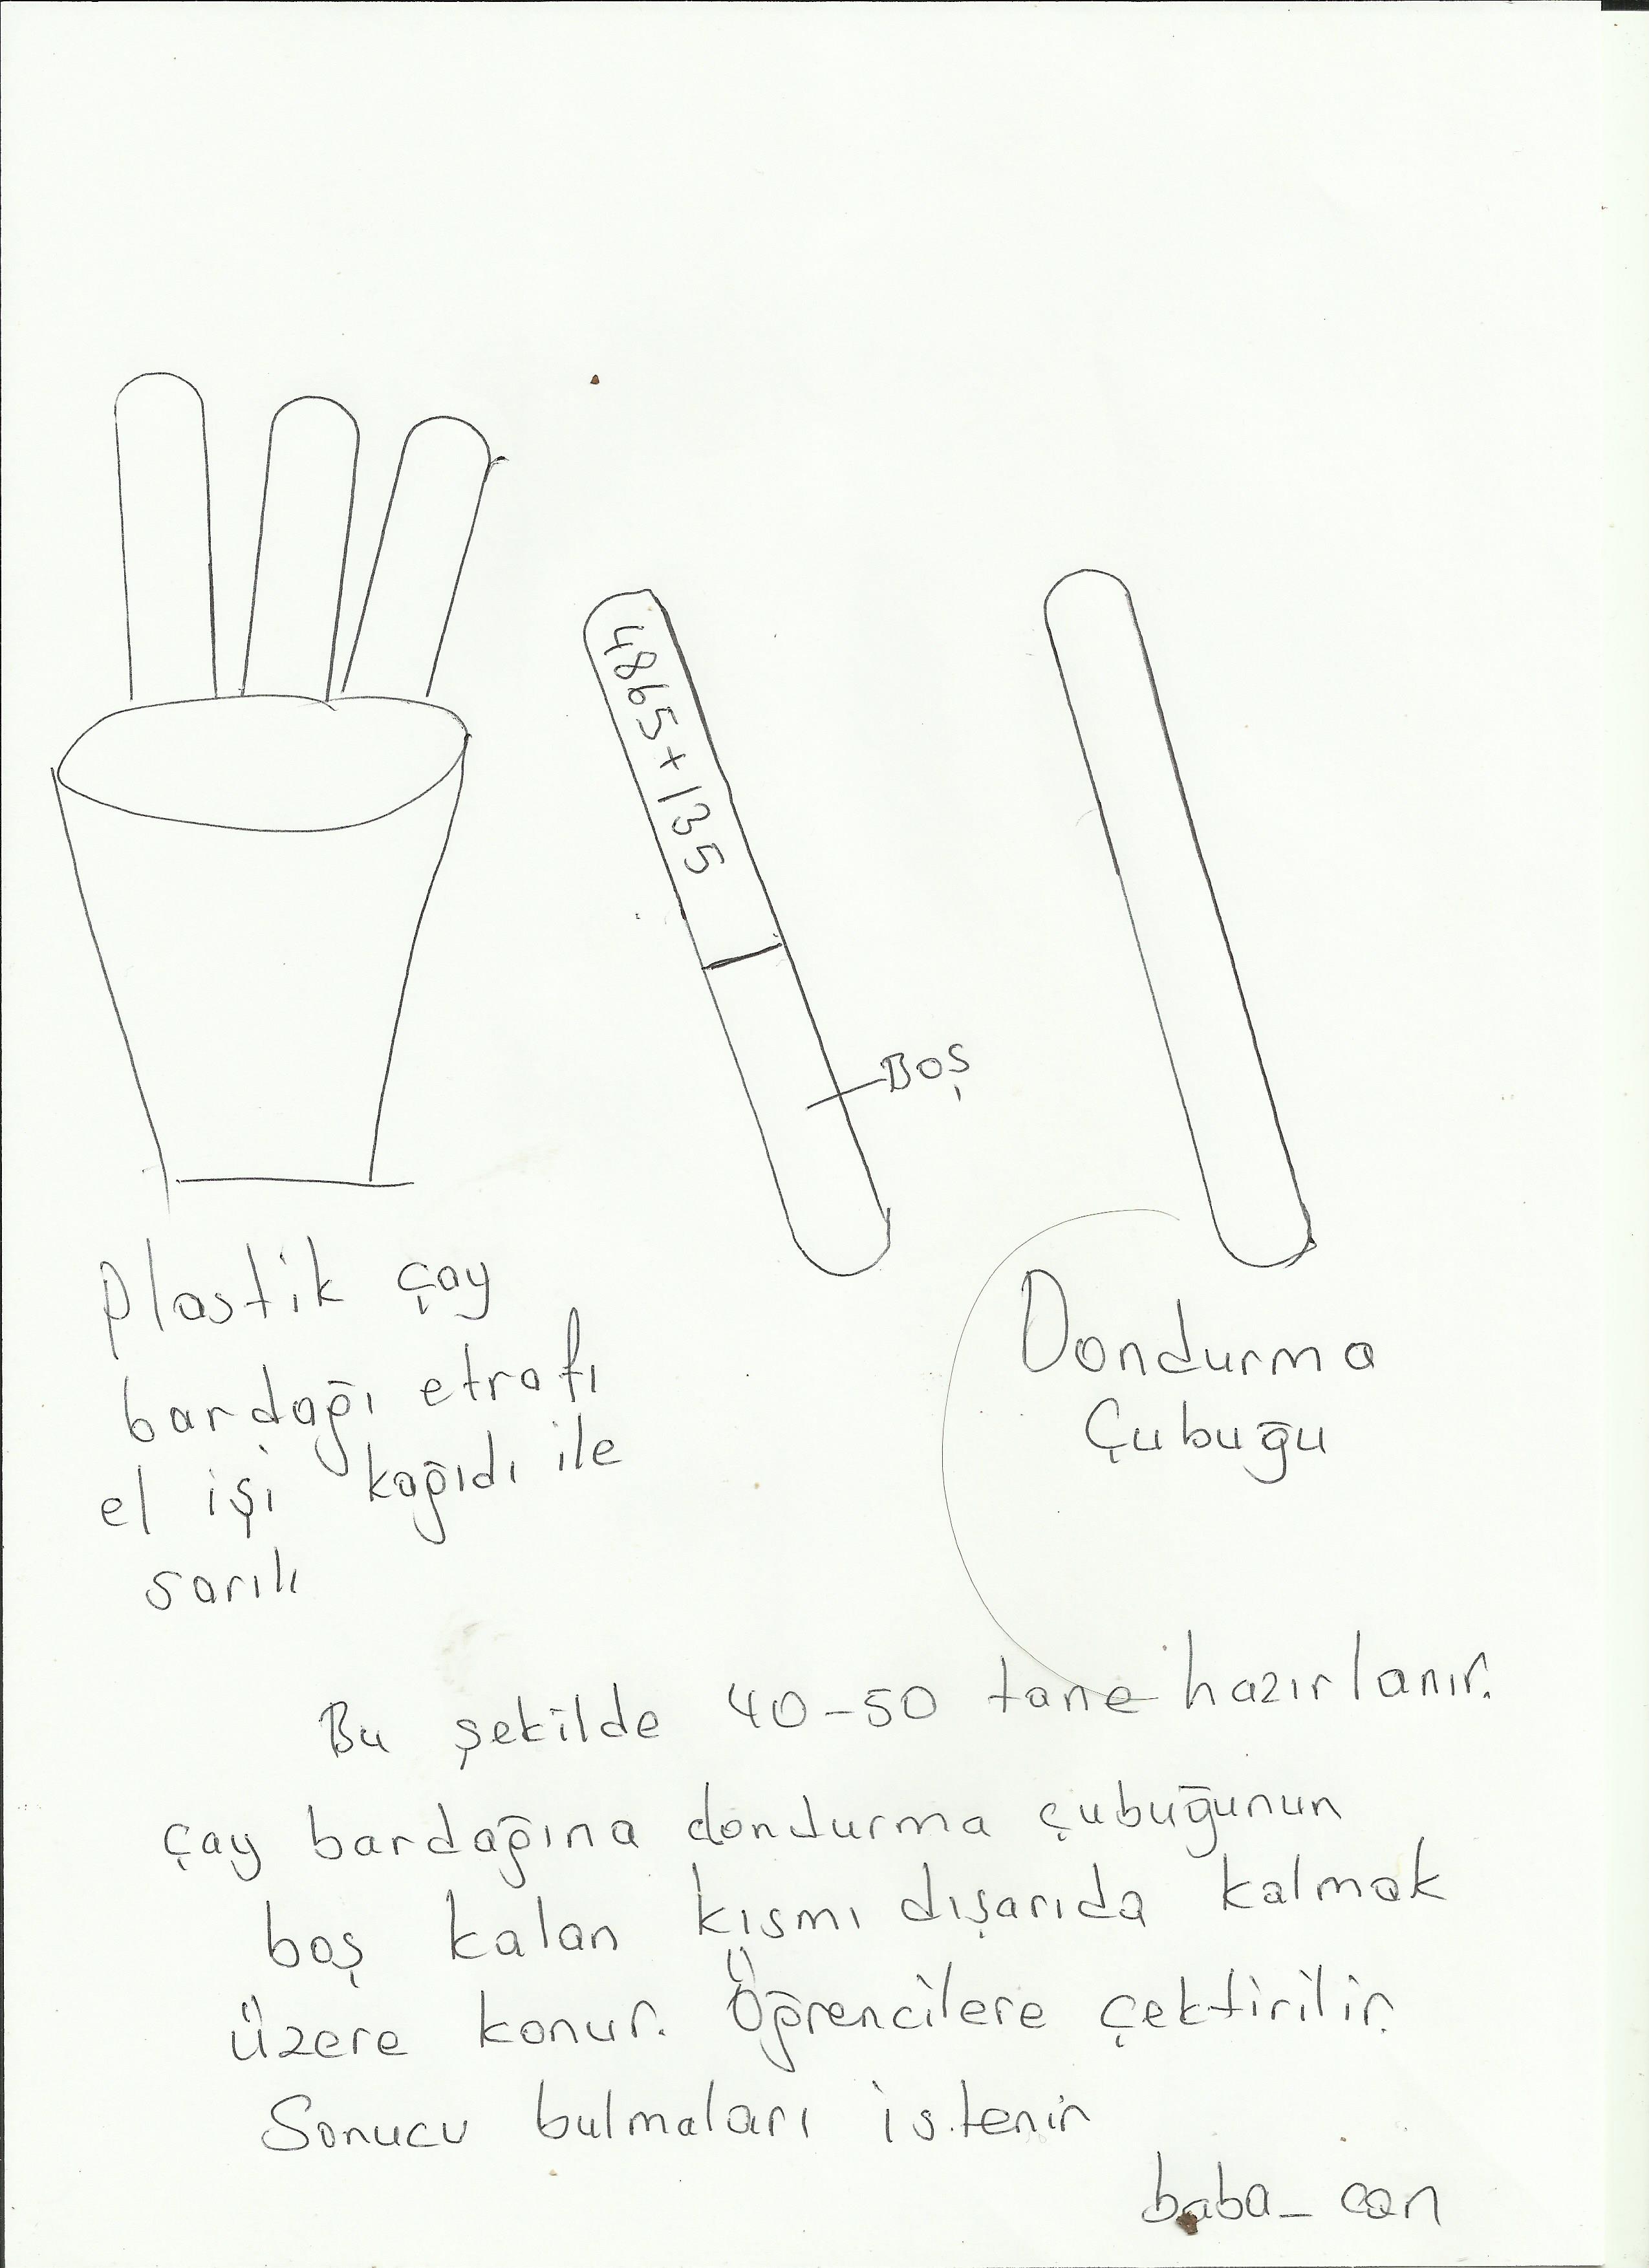 4865+135
Boş
Plastik çay
bardağı etrafı
el işi kağıdı ile
sarılı
Dondurma
Çubuğu
Bu şekilde 40-50 tane hazırlanır.
çay bardağına dondurma çubuğunun
boş kalan kısmı dışarıda kalmak
üzere konur. Öğrencilere çektirilir.
Sonucu bulmaları istenir
baba_can